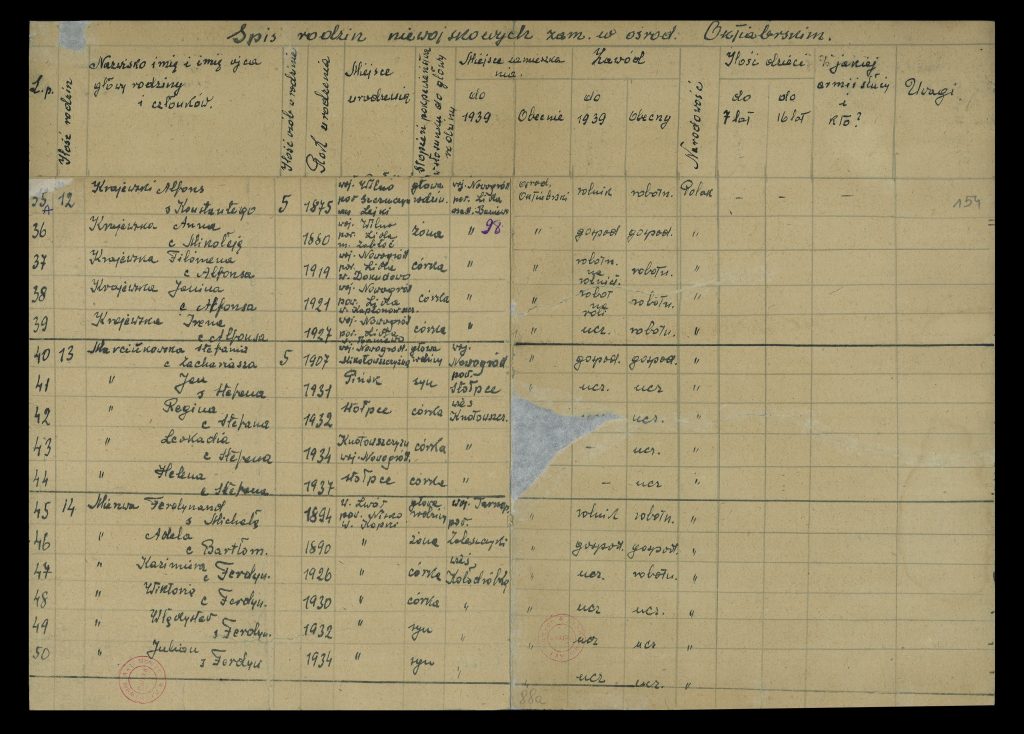 Spis rodzin niewojskowych zam. w ośrod. Oktiabrskim.
L.p. Ilość rodzin Nazwisko imię i imię ojca głowy rodziny i członków. Ilość osób w rodzinie Rok urodzenia Miejsce urodzenia Stopień pokrewieństwa w stosunku do głowy rodziny Miejsce zamieszkania. do 1939 Obecnie Zawód do 1939 obecny Narodowość Ilość dzieci do 7 lat do 16 lat W jakiej armii służy i kto? Uwagi.
35 12 Krajewski Alfons s Konstantego 5 1875 woj. Wilno pow. Szczuczyn Lejki głowa rodzin. woj. Nowogród. pow. Lida ośrod. Oktiabrski rolnik robotn. Polak – – – 154
A
36 Krajewska Anna c Mikołaja 1880 woj. Wilno pow. Lida m. Zabłoć żona " 98 " gospod gospod. "
37 Krajewska Filomena c Alfonsa 1919 woj. Nowogród pow. Lida w. Dokudowo córka " " robotn. na rolnict. robotn. "
38 Krajewska Janina c Alfonsa 1921 woj. Nowogród pow. Lida córka " " robot na roli robotn. "
39 Krajewska Irena c Alfonsa 1927 woj. Nowogród pow. Lida córka " " ucz. robotn. "
40 13 Marciukowska Stefania c Zachariasza 5 1907 woj. Nowogród. głowa rodziny woj. Nowogród pow. Stołpce " gospod. gospod. "
41 " Jan s Stefana 1931 Pińsk syn " ucz. ucz "
42 " Regina c Stefana 1932 Stołpce córka wieś ucz. "
43 " Leokadia c Stefana 1934 woj. Nowogród. córka " – ucz. "
44 " Helena c Stefana 1937 Stołpce córka " – ucz "
45 14 Mierwa Ferdynand s Michała 1894 w. Lwów pow. Nisko w. Kopki głowa rodziny woj. Tarnop. pow. Zaleszczycki wieś Kołodróbka " rolnik robotn. "
46 " Adela c Bartłom. 1890 " żona " gospod. gospod. "
47 " Kazimiera c Ferdyn. 1926 " córka " ucz. robotn. "
48 " Wiktoria c Ferdyn. 1930 " córka " " ucz ucz. "
49 " Władysław s Ferdyn. 1932 " syn " ucz ucz. "
50 " Julian s Ferdyn 1934 " syn " " ucz ucz. "
88a